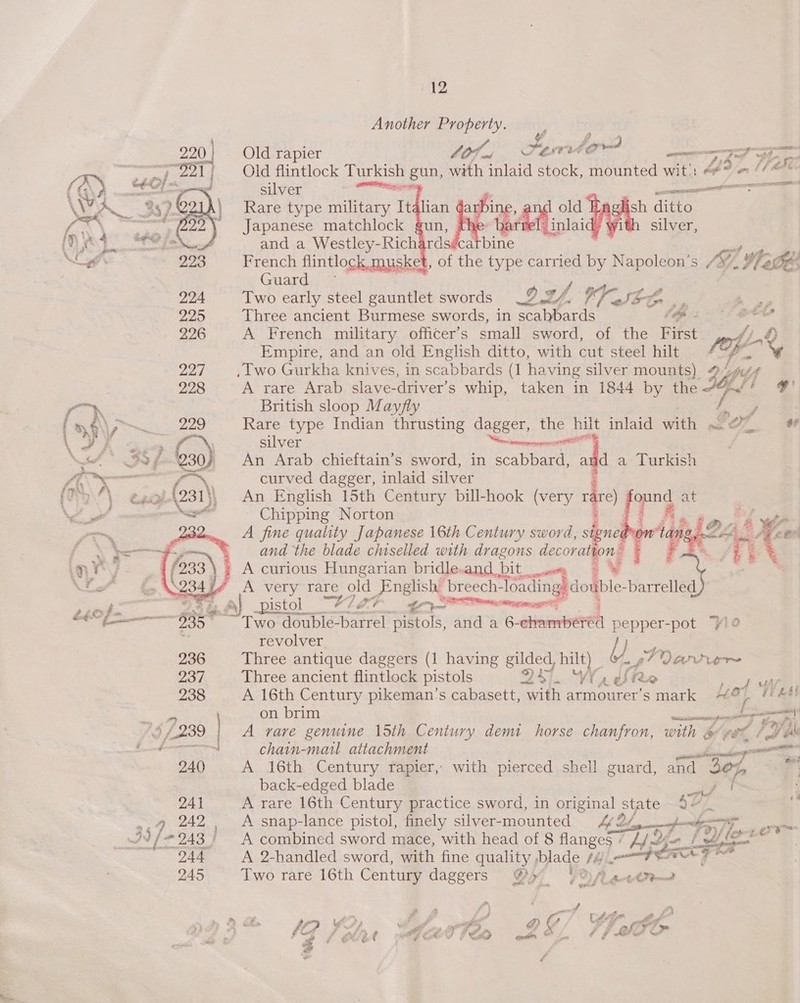 12
Another Property.
220 Old rapier
221 Old flintlock Turkish gun, with inlaid stock, mounted with
silver
221A Rare type military Italian carbine, and old English ditto
222 Japanese matchlock gun, the barrel inlaid with silver,
and a Westley-Richards carbine
223 French flintlock musket, of the type carried by Napoleon's
Guard
224 Two early steel gauntlet swords
225 Three ancient Burmese swords, in scabbards
226 A French military officer's small sword, of the First
Empire, and an old English ditto, with cut steel hilt
227 Two Gurkha knives, in scabbards (1 having silver mounts)
228 A rare Arab slave-driver's whip, taken in 1844 by the
British sloop Mayfly
229 Rare type Indian thrusting dagger, the hilt inlaid with
silver
230 An Arab chieftain's sword, in scabbard, and a Turkish
curved dagger, inlaid silver
231 An English 15th Century bill-hook (very rare) found at
Chipping Norton
232 A fine quality Japanese 16th Century sword, signed on tang,
and the blade chiselled with dragons decoration
233 A curious Hungarian bridle and bit
234 A very rare old English breech-loading double-barrelled
pistol
235 Two double-barrel pistols, and a 6-chambered pepper-pot
revolver
236 Three antique daggers (1 having gilded hilt)
237 Three ancient flintlock pistols
238 A 16th Century pikeman's cabasett, with armourer's mark
on brim
239 A rare genuine 15th Century demi horse chanfron, with
chain-mail attachment
240 A 16th Century rapier, with pierced shell guard, and
back-edged blade
241 A rare 16th Century practice sword, in original state
242 A snap-lance pistol, finely silver-mounted
243 A combined sword mace, with head of 8 flanges
244 A 2-handled sword, with fine quality blade
245 Two rare 16th Century daggers